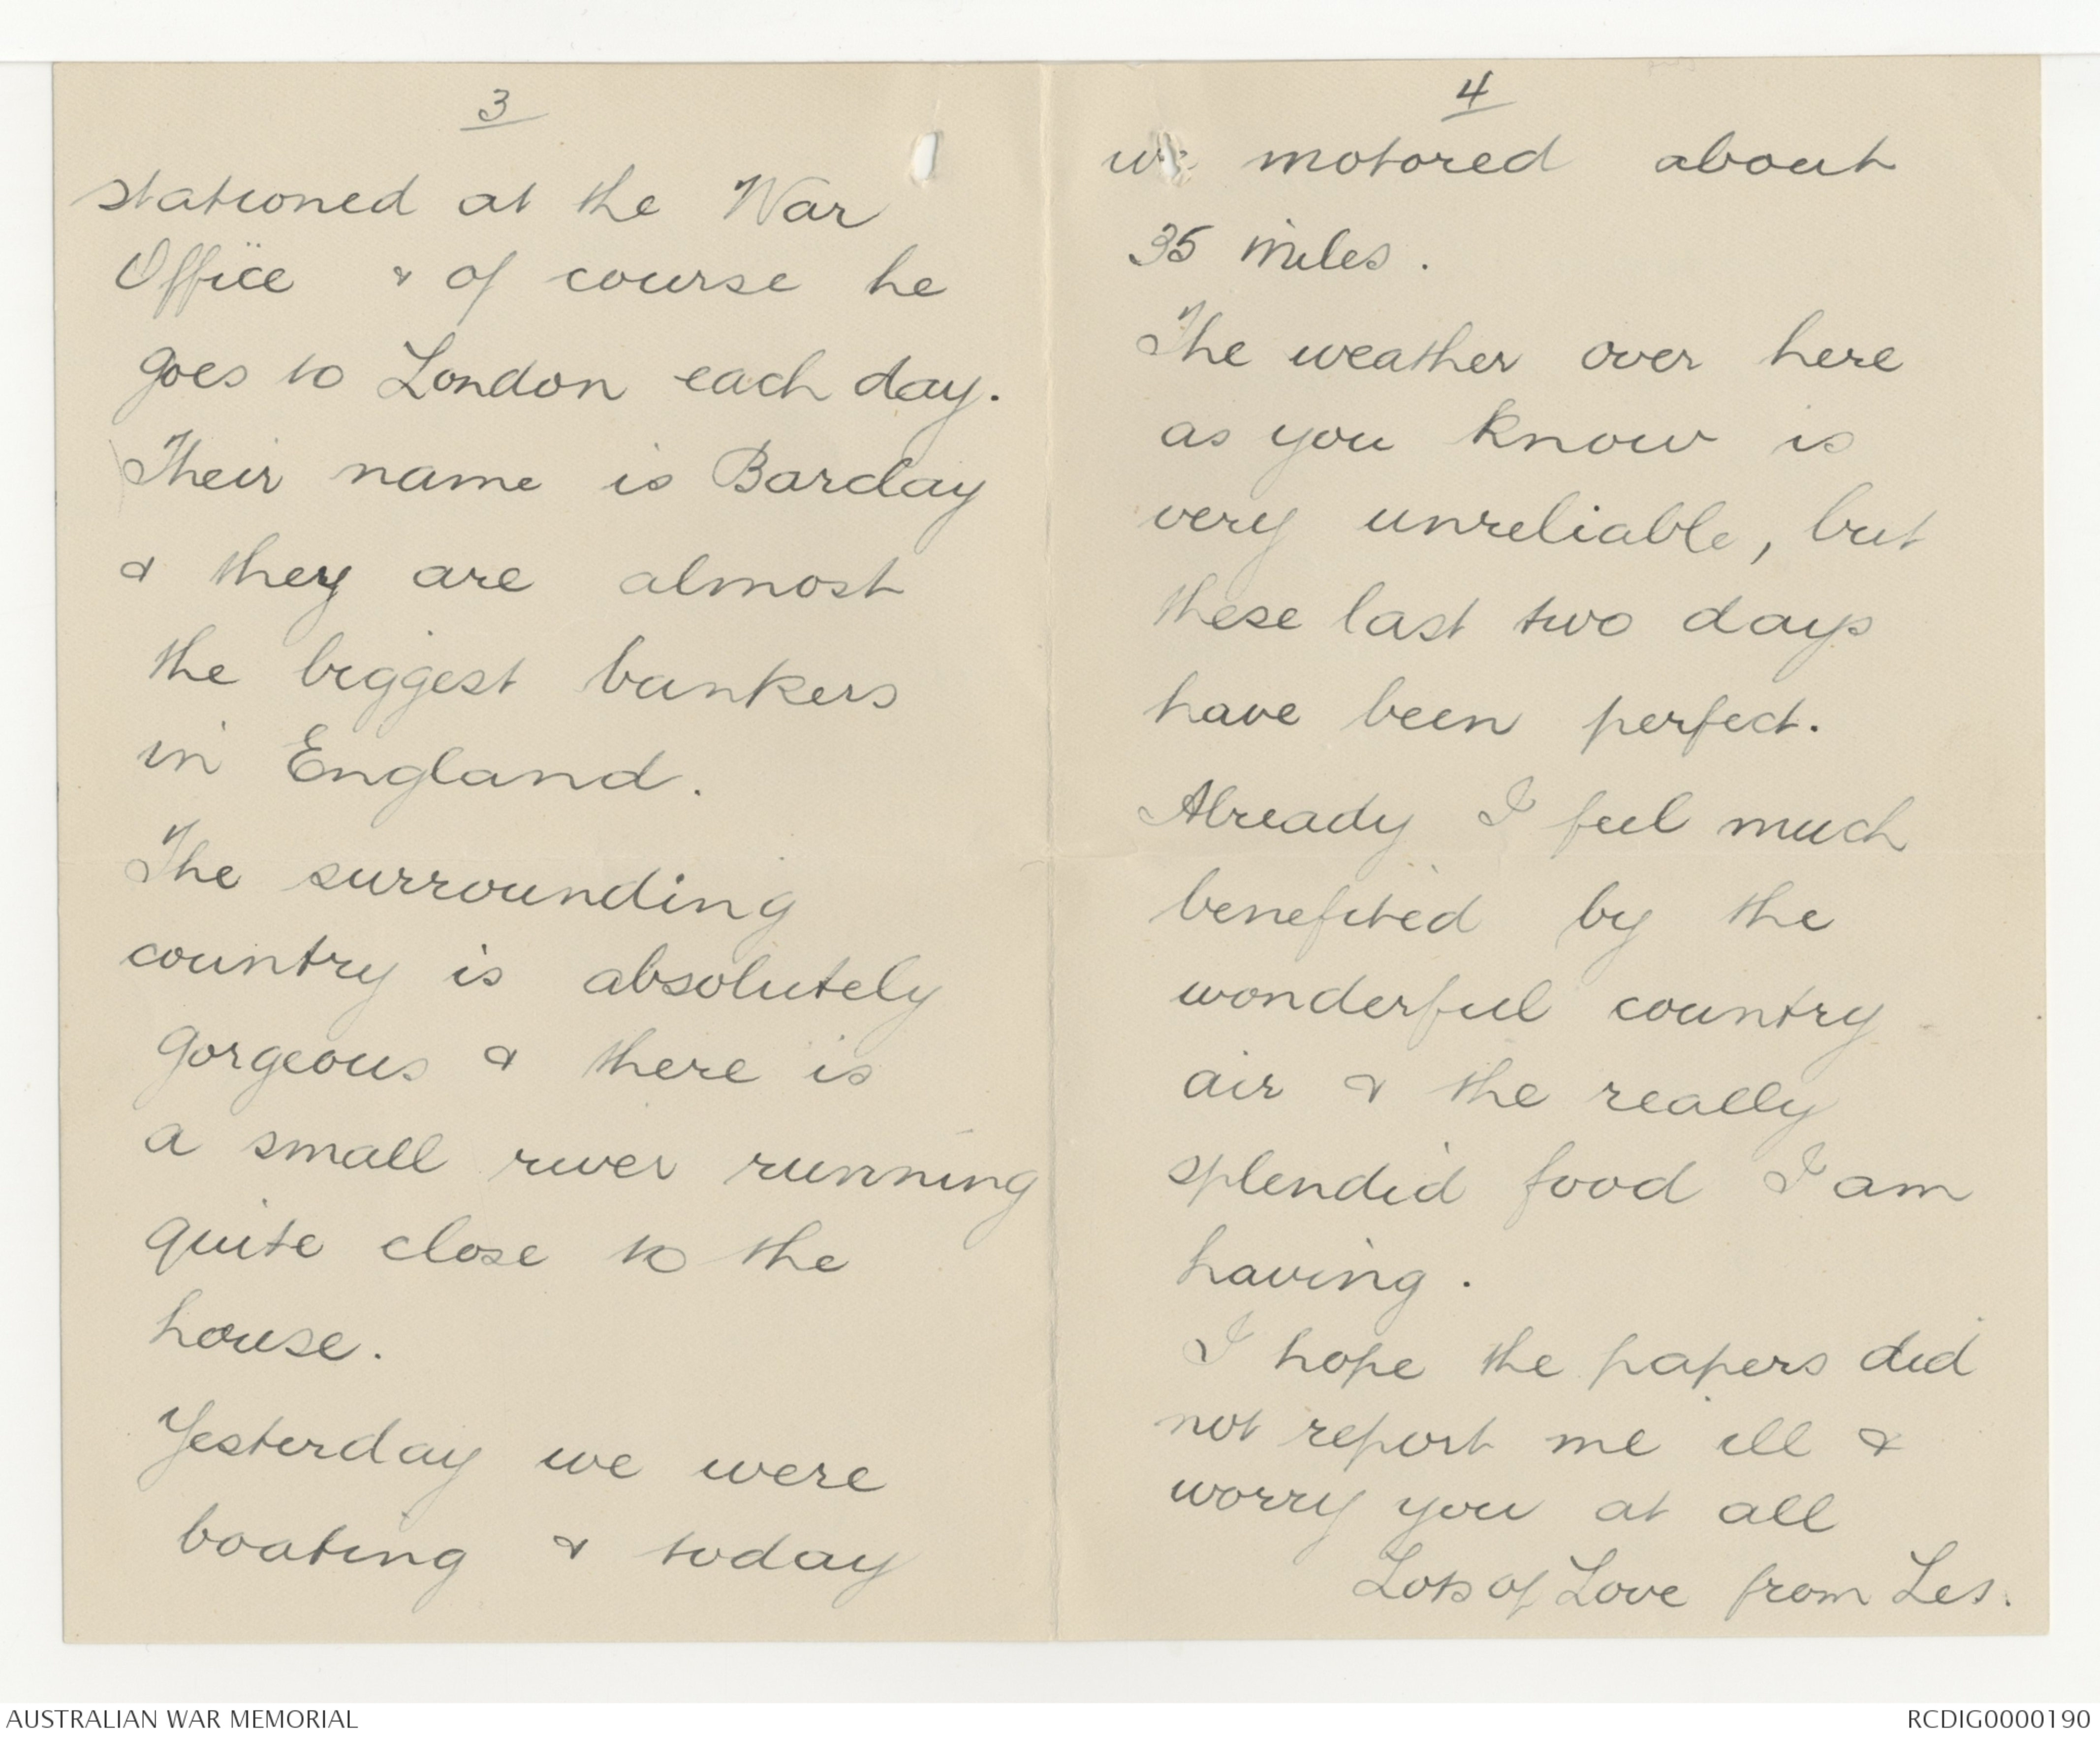 3
stationed at the War
Office & of course he
goes to London each day.
Their name is Barclay
& they are almost
the biggest bankers
in England.
The surrounding
country is absolutely
gorgeous & there is
a small river running
quite close to the
house.
Yesterday we were
boating & today
4
we motored about
35 miles.
The weather over here
as you know is
very unreliable, but
these last two days
have been perfect.
Already I feel much
benefited by the
wonderful country
air & the really
splendid food I am
having.
I hope the papers did
not report me ill &
worry you at all
Lots of Love from Les.
AUSTRALIAN WAR MEMORIAL
RCDIG0000190